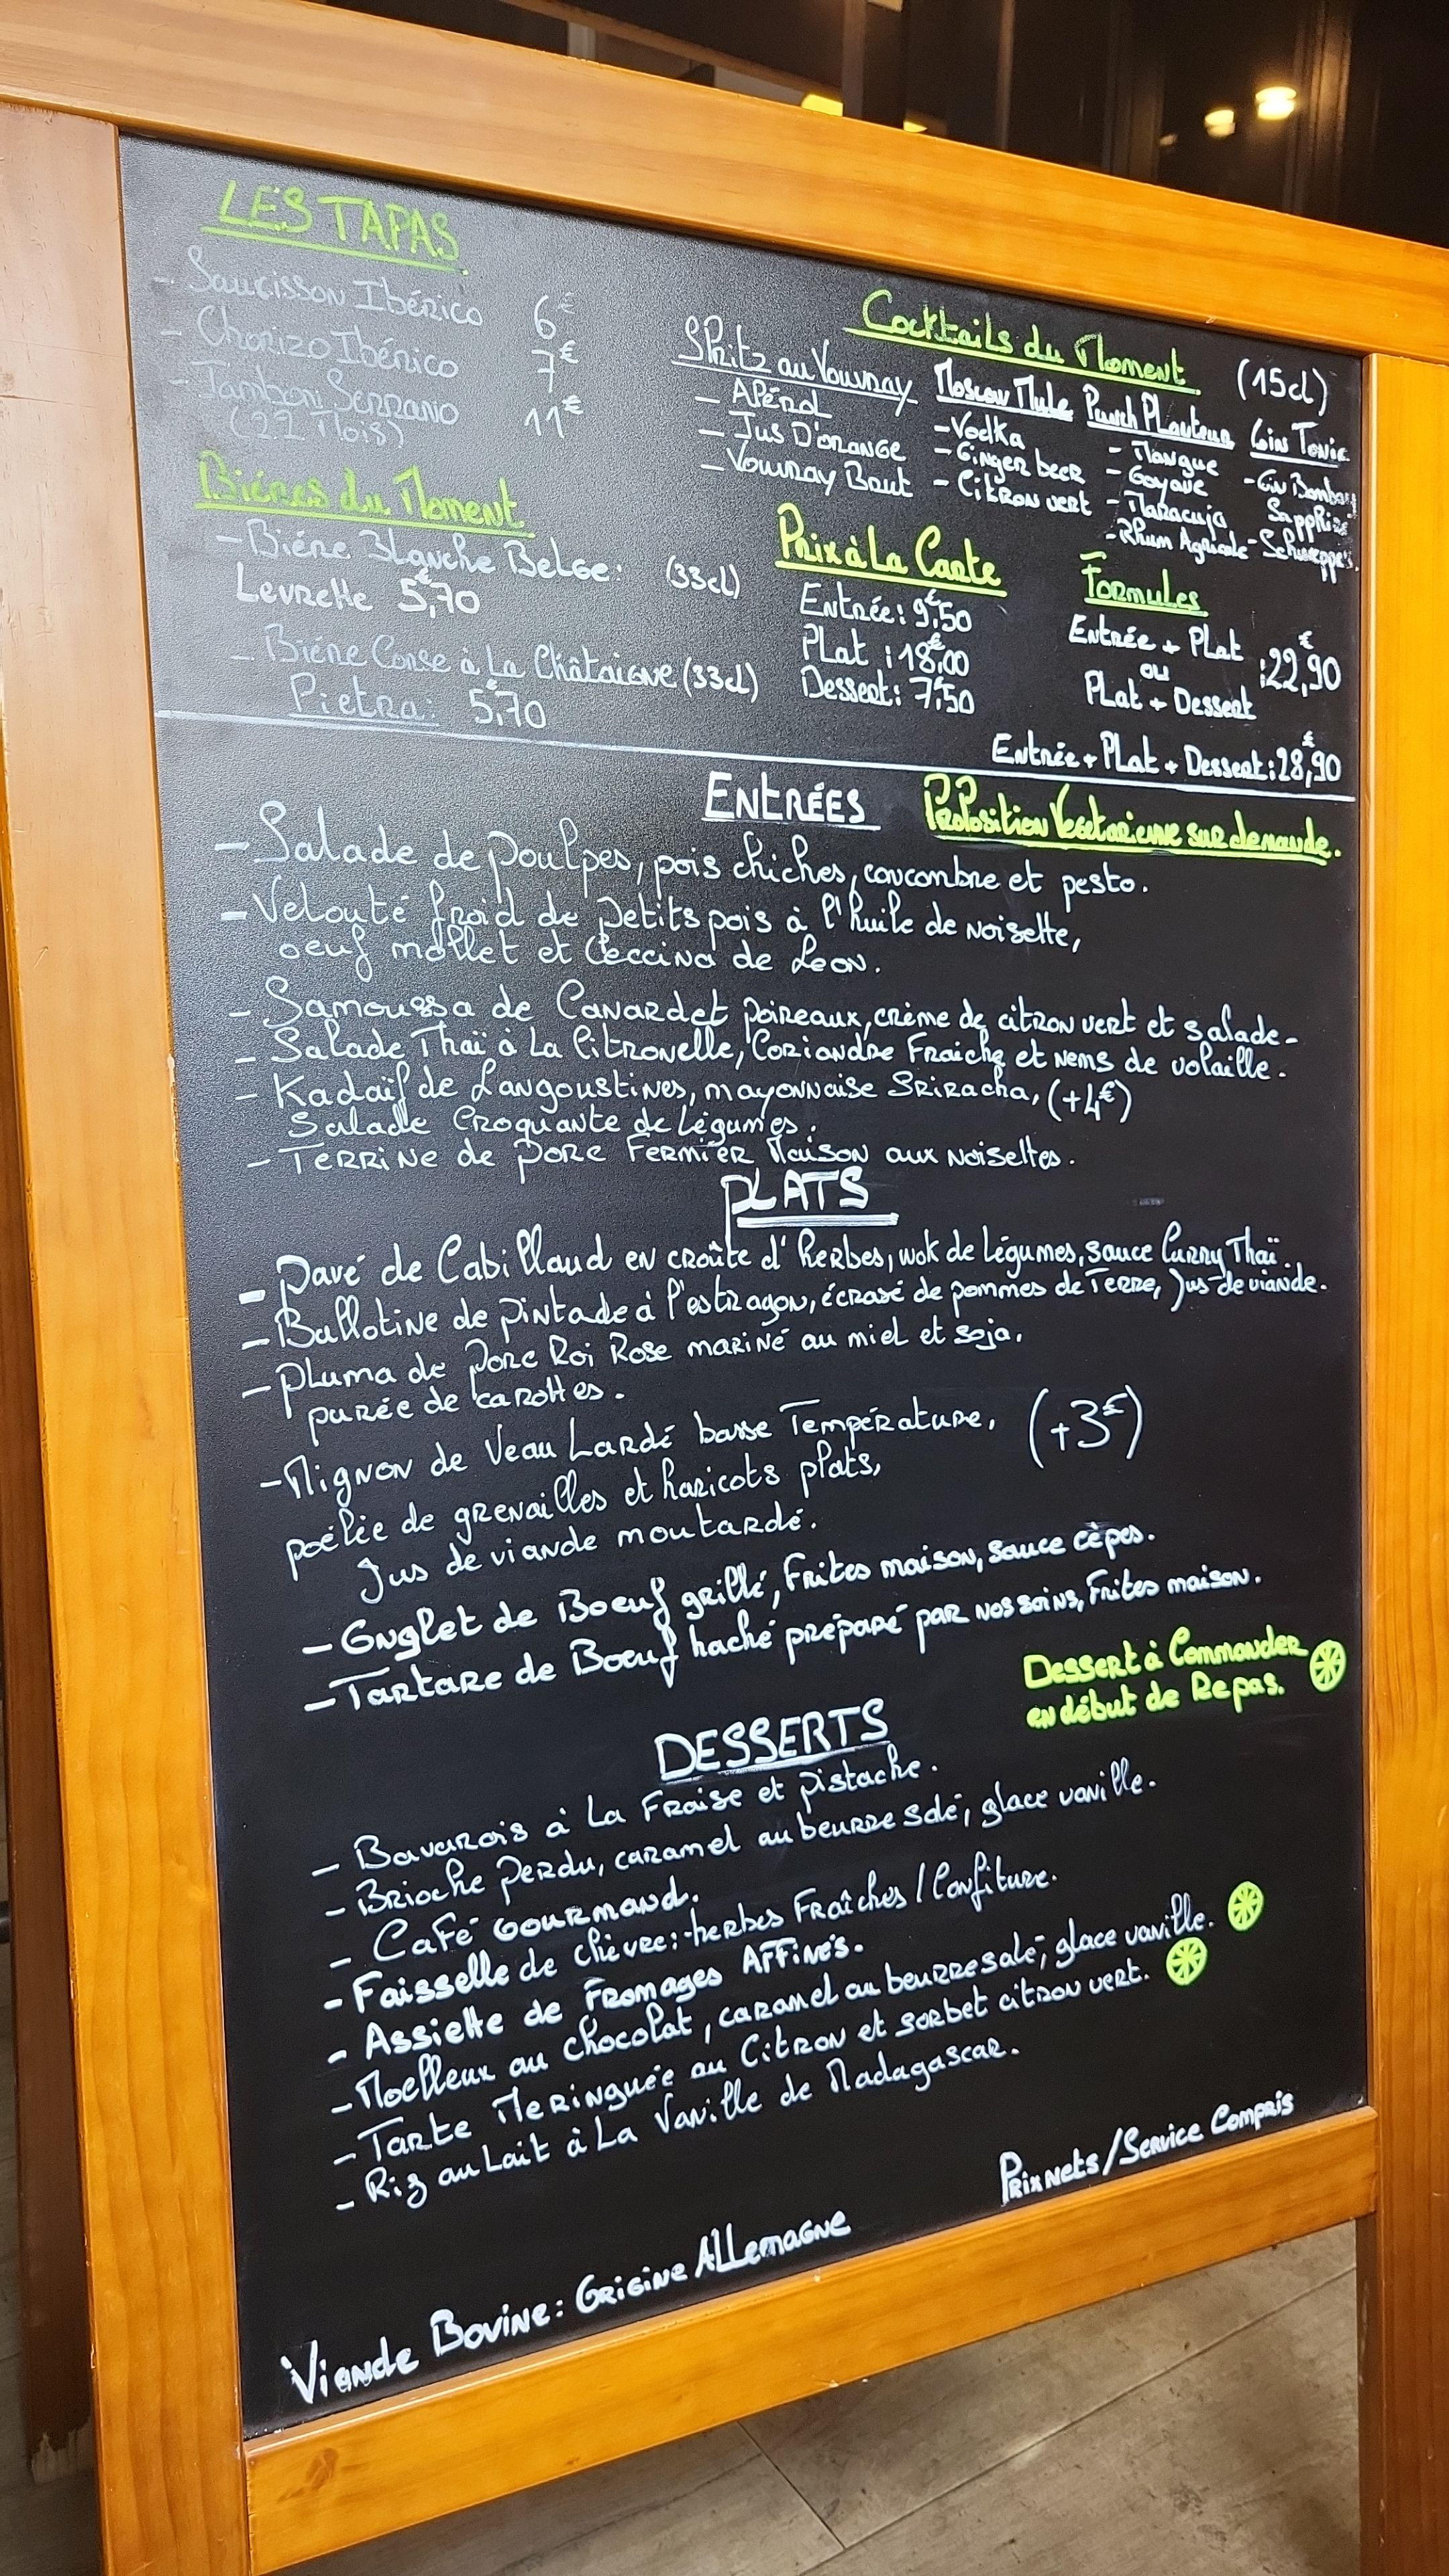 LES TAPAS
- Saucisson Ibérico 6€
- Chorizo Ibérico 7€
- Jamboni Serrano 11€
(22 Mois)
Cocktails du Moment (15cl)
Spritz au Vouvray
- Apérol
- Jus D'orange
- Vouvray Brut
Moscow Mule
- Vodka
- Ginger beer
- Citron vert
Punch Planteur
- Mangue
- Goyave
- Maracuja
- Rhum Agricole
Gin Tonic
- Gin Bombay
Sapphire
- Schweppes
Bières du Moment
- Bière Blanche Belge: (33cl)
Levrette 5,€70
- Bière Corse à La Châtaigne (33cl)
Pietra. 5,€70
Prix à La Carte
Entrée: 9,€50
Plat : 18,€00
Dessert: 7,€50
Formules
Entrée + Plat
ou :22,€90
Plat + Dessert
Entrée + Plat + Dessert: 28,€90
ENTRÉES
Proposition Vegetarienne sur demande.
- Salade de poulpes, pois chiches, concombre et pesto.
- Velouté froid de petits pois à l'huile de noisette,
oeuf mollet et Ceccina de Leon.
- Samoussa de Canard et poireaux, crème de citron vert et salade-
- Salade Thaï à La Citronelle, Coriandre Fraiche et nems de volaille.
- Kadaïf de Langoustines, mayonnaise Sriracha, (+4€)
Salade Croquante de Légumes.
- Terrine de porc Fermier Maison aux noisettes.
PLATS
- Pavé de Cabillaud en croûte d'herbes, wok de Légumes, sauce Curry Thaï.
- Ballotine de pintade à l'estragon, écrasé de pommes de Terre, Jus de viande.
- Pluma de porc Roi Rose mariné au miel et soja,
purée de carottes.
- Mignon de Veau Lardé basse Température, (+3€)
poêlée de grenailles et haricots plats,
Jus de viande moutardé.
- Onglet de Boeuf grillé, Frites maison, sauce cèpes.
- Tartare de Boeuf haché préparé par nos soins, Frites maison.
Dessert à Commander
en début de Repas.
DESSERTS
- Bavarois à La Fraise et pistache.
- Brioche perdu, caramel au beurre salé, glace vanille.
- Café Gourmand.
- Faisselle de chèvre: herbes Fraîches / Confiture.
- Assiette de Fromages Affinés.
- Moelleux au chocolat, caramel au beurre salé, glace vanille.
- Tarte Meringuée au Citron et sorbet citron vert.
- Riz au Lait à La Vanille de Madagascar.
Prix nets / Service Compris
Viande Bovine: Origine Allemagne